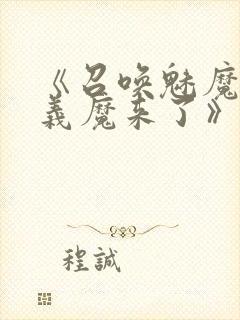 《召唤魅魔
義魔来了》
程誠